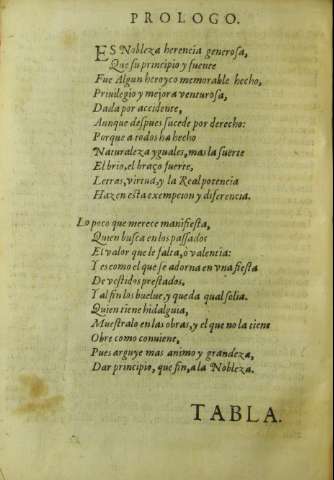 PROLOGO.
ES Nobleza herencia generosa,
Que su principio y fuente
Fue Algun heroyco memorable hecho,
Priuilegio y mejora venturosa,
Dada por accidente,
Aunque despues sucede por derecho:
Porque a todos ha hecho
Naturaleza yguales, mas la suerte
El brio, el braço fuerte,
Letras, virtud, y la Real potencia
Hazen esta exempcion y diferencia.
Lo poco que merece manifiesta,
Quien busca en los passados
El valor que le falta, ò valentia:
Y es como el que se adorna en vna fiesta
De vestidos prestados.
Y al fin los buelue, y queda qual solia.
Quien tiene hidalguia,
Muestralo en las obras, y el que no la tiene
Obre como conuiene,
Pues arguye mas animo y grandeza,
Dar principio, que fin, a la Nobleza.
TABLA.